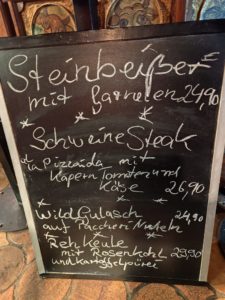 Steinbeißer
mit Garnelen 24,90
Schweine Steak
a la Pizzaida mit
Kapern Tomaten und
Käse 26,90
Wild Gulasch 24,90
auf Paccheri Nudeln
Rehkeule
mit Rosenkohl 29,90
und Kartoffelpüree